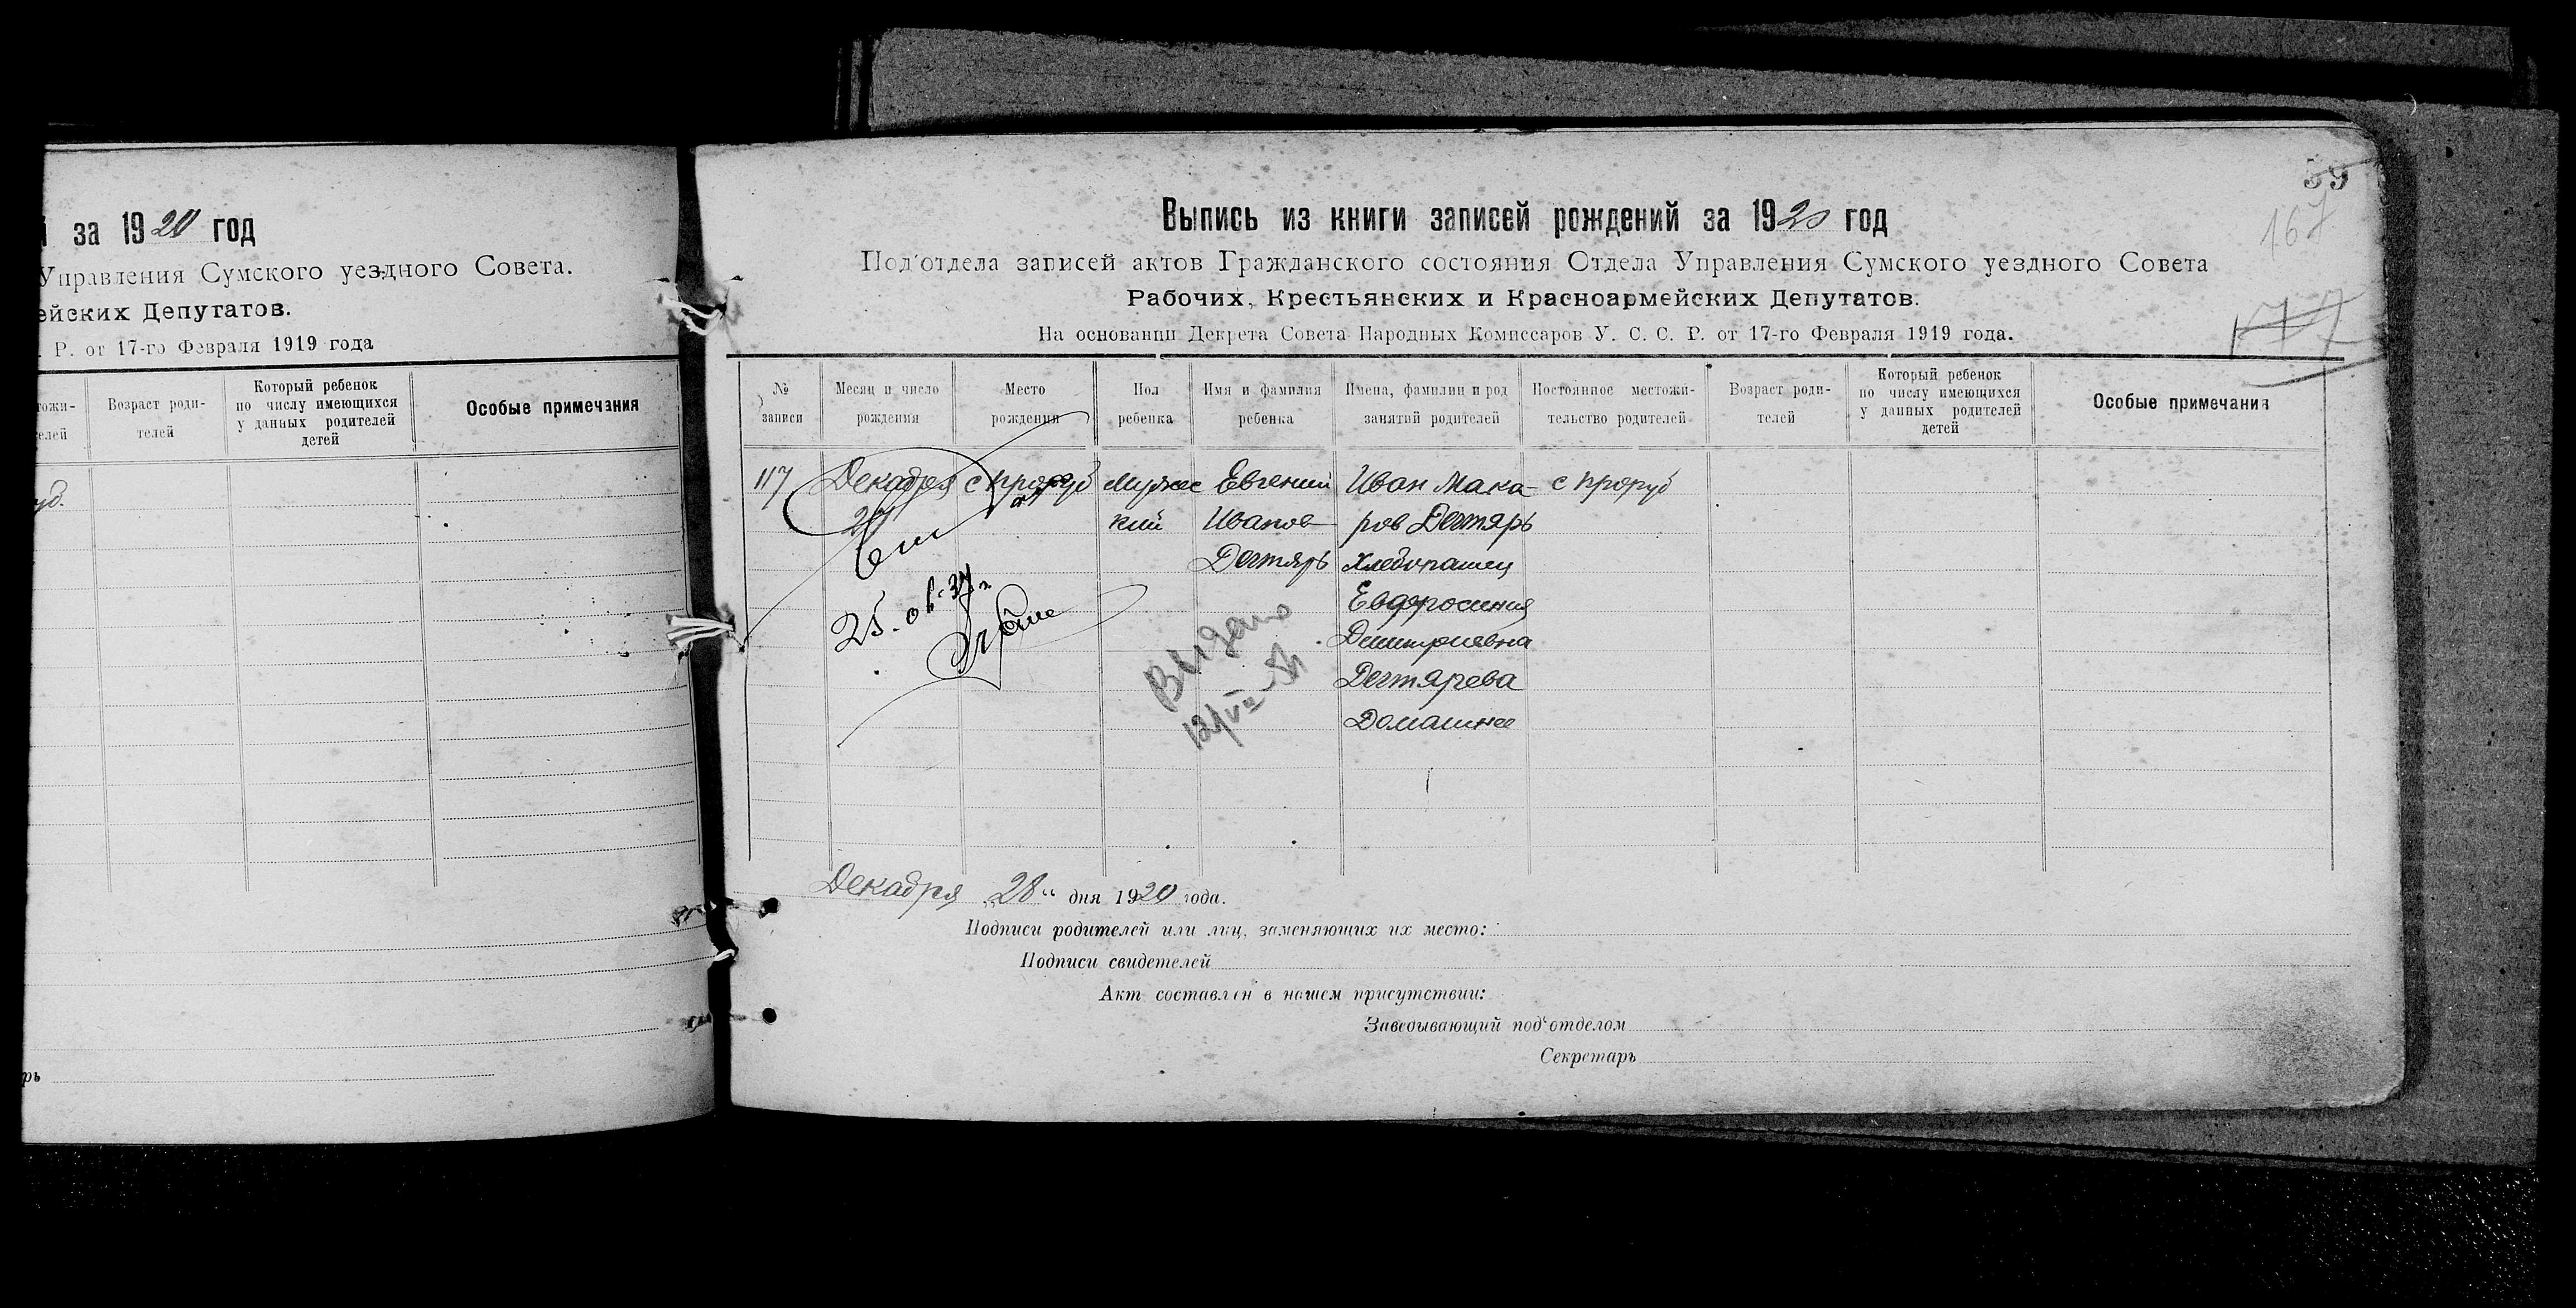 за 1920 год
Управления Сумского уездного Совета.
ейских Депутатов.
Р. от 17-го Февраля 1919 года
тожи-
елей
Возраст роди-
телей
Который ребенок
по числу имеющихся
у данных родителей
детей
Особые примечания
уб.
рь
59
167
177
Выпись из книги записей рождений за 1920 год
Под'отдела записей актов Гражданского состояния Отдела Управления Сумского уездного Совета
Рабочих, Крестьянских и Красноармейских Депутатов.
На основании Декрета Совета Народных Комиссаров У. С. С. Р. от 17-го Февраля 1919 года.
№
записи
Месяц и число
рождения
Место
рождения
Пол
ребенка
Имя и фамилия
ребенка
Имена, фамилии и род
занятий родителей
Постоянное местожи-
тельство родителей
Возраст роди-
телей
Который ребенок
по числу имеющихся
у данных родителей
детей
Особые примечания
117 Декабря с проруб мужес Евгений Иван Мака- с проруб
кий Иванов ров Дегтярь
Дегтярь Хлебопашец
Евфросиния
Димитриевна
Дегтярева
Домашнее
25.
Выдано
12/VII-51
Декабря „28“ дня 1920 года.
Подписи родителей или лиц, заменяющих их место:
Подписи свидетелей
Акт составлен в нашем присутствии:
Заведывающий под'отделом
Секретарь